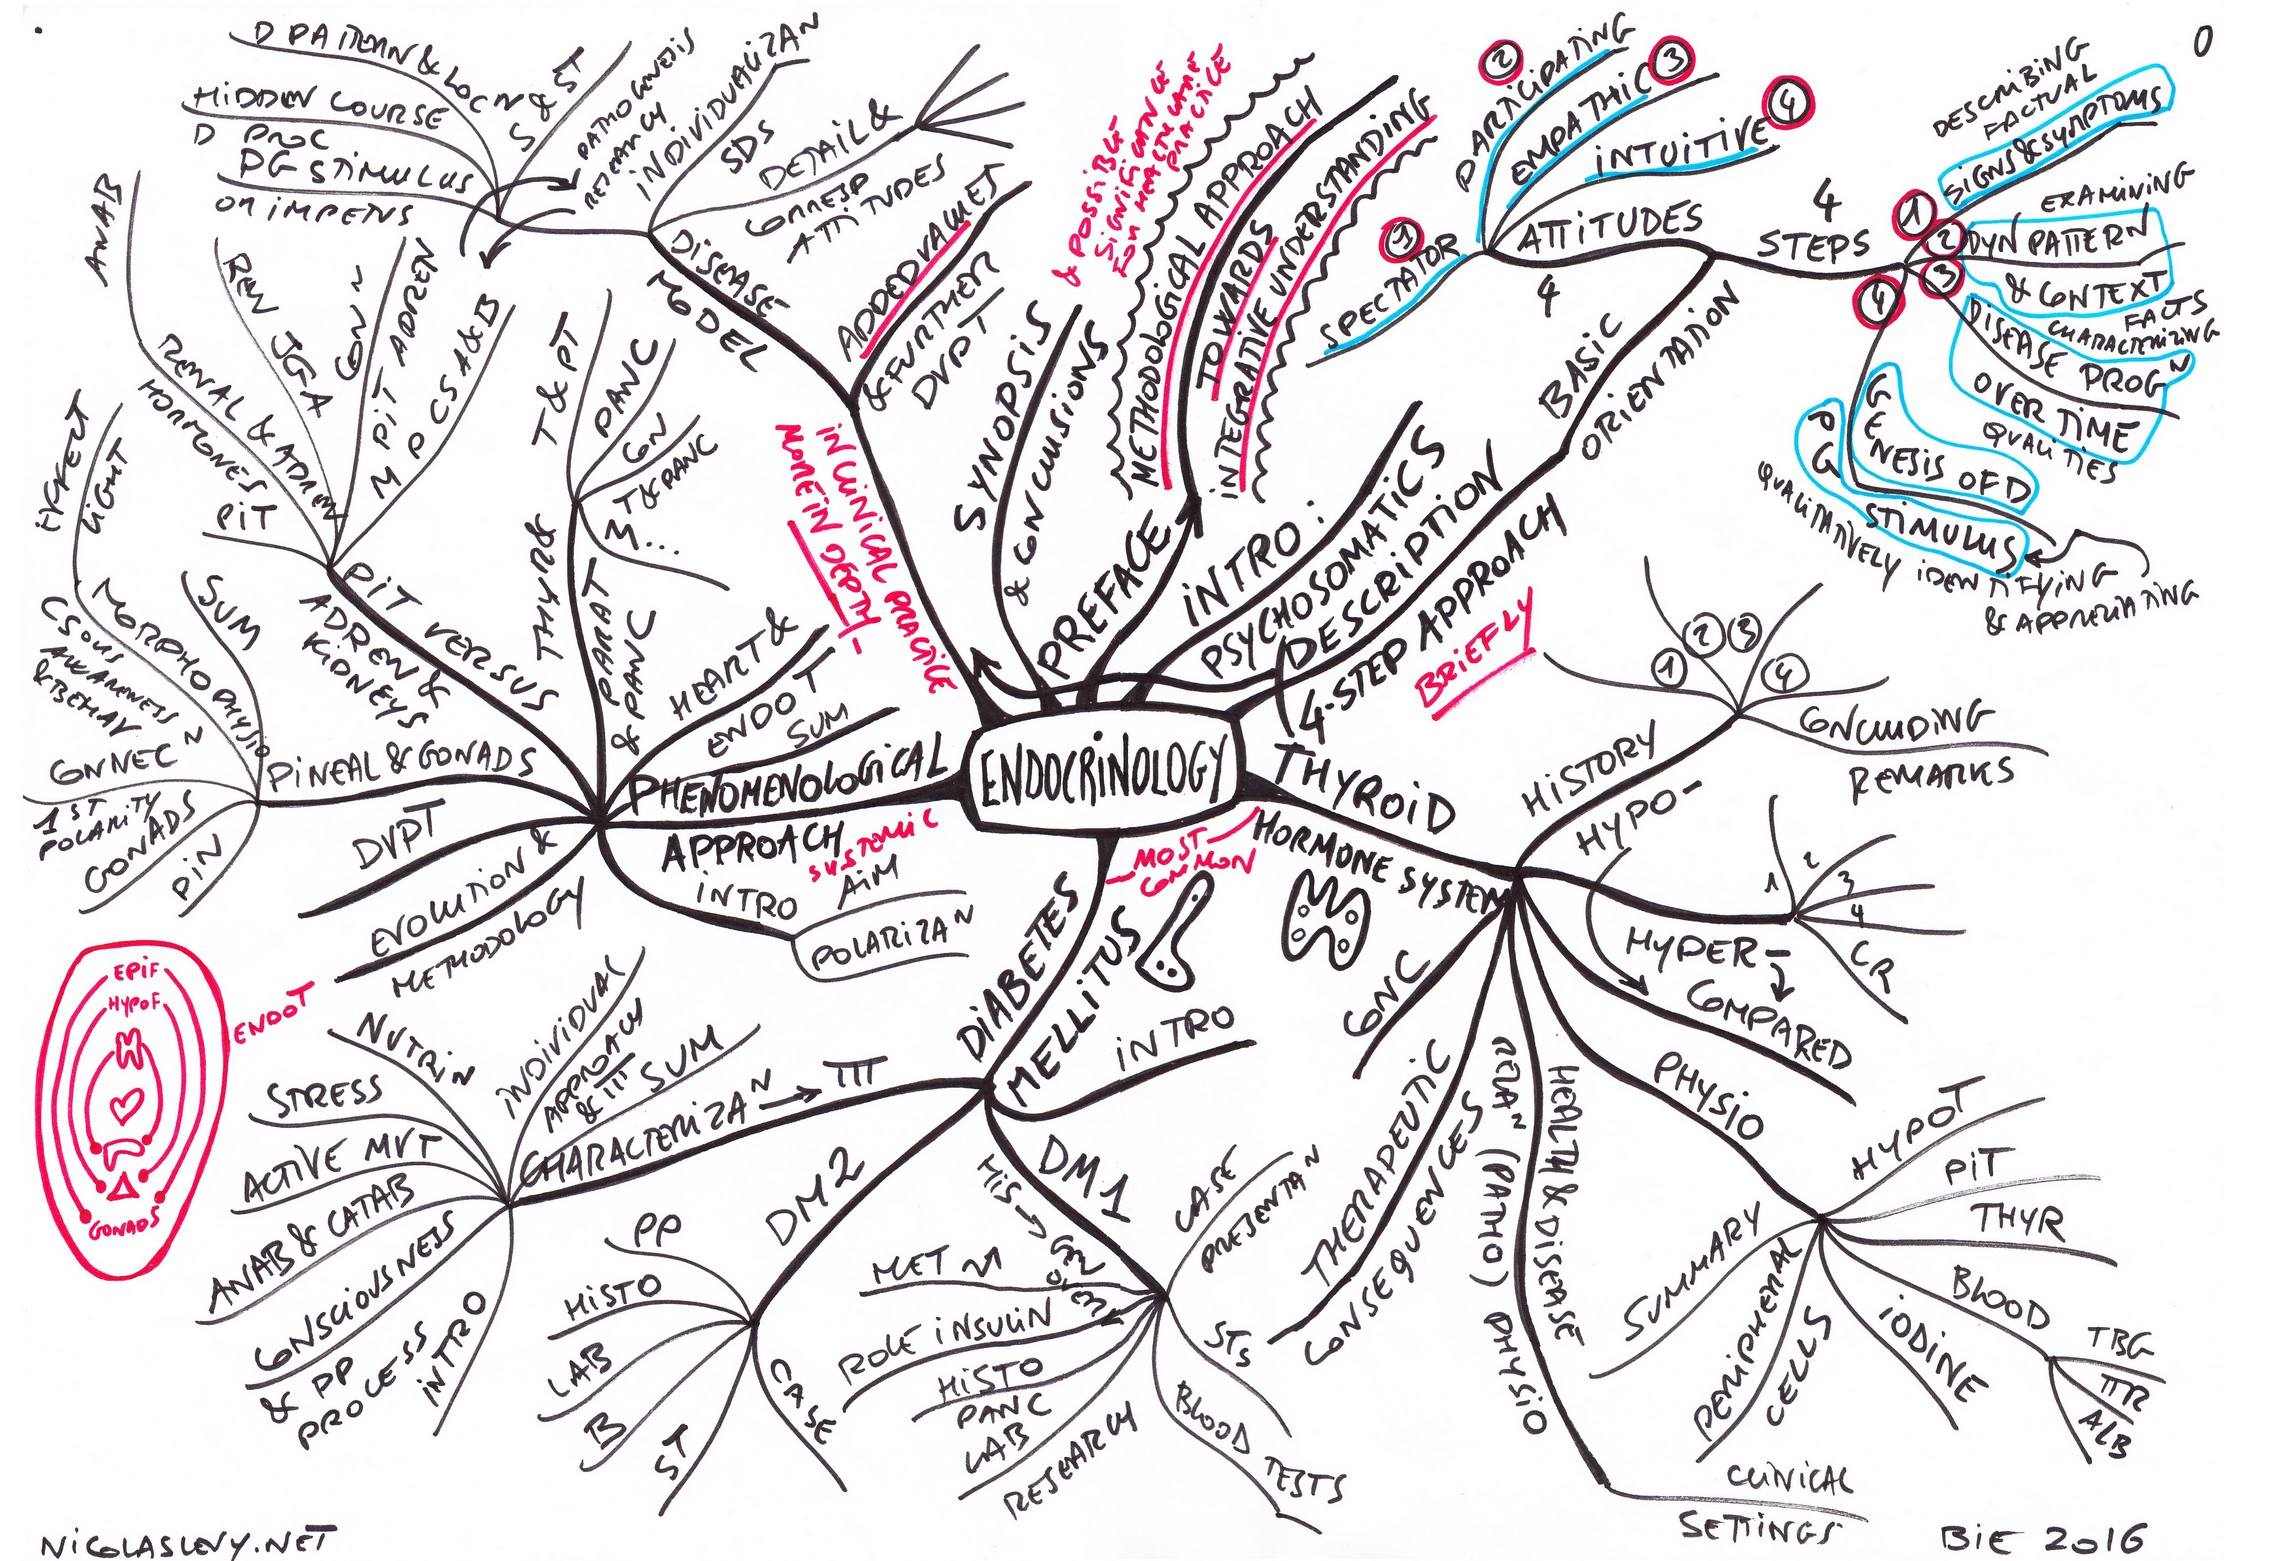 ENDOCRINOLOGY
PREFACE
METHODOLOGICAL APPROACH
TOWARDS
INTEGRATIVE UNDERSTANDING
SYNOPSIS
& CONCLUSIONS
& POSSIBLE
SIGNIFICANCE
FOR HEALTHCARE
PRACTICE
INTRO:
PSYCHOSOMATICS
DESCRIPTION
4-STEP APPROACH
BRIEFLY
BASIC
ORIENTATION
ATTITUDES
4
1
SPECTATOR
2
PARTICIPATING
EMPATHIC
3
INTUITIVE
4
4
STEPS
1
DESCRIBING
FACTUAL
SIGNS & SYMPTOMS
EXAMINING
2
DYN PATTERN
& CONTEXT
FACTS
3
CHARACTERIZING
DISEASE PROGN
OVER TIME
QUALITIES
4
GENESIS OF D
PG
STIMULUS
QUALITATIVELY IDENTIFYING
& APPRECIATING
0
THYROID
HORMONE SYSTEM
MOST
COMMON
HISTORY
1
2
3
4
CONCLUDING
REMARKS
HYPO-
1
2
3
4
CR
HYPER-
COMPARED
PHYSIO
HYPOT
PIT
THYR
BLOOD
TBG
TTR
ALB
IODINE
PERIPHERAL
CELLS
SUMMARY
HEALTH & DISEASE
RELAN (PATHO) PHYSIO
CLINICAL
SETTINGS
THERAPEUTIC
CONSEQUENCES
CNC
DIABETES
MELLITUS
INTRO
DM1
HIS
CASE
PRESENTAN
STS
BLOOD
TESTS
RESEARCH
LAB
HISTO
PANC
ROLE INSULIN
MET
DM2
CASE
ST
B
LAB
HISTO
PP
CHARACTERIZAN
TTT
SUM
INDIVIDUAL
APPROACH
& TTT
NUTRIN
STRESS
ACTIVE MVT
ANAB & CATAB
CONSCIOUSNESS
& PP
PROCESS
INTRO
PHENOMENOLOGICAL
APPROACH
SYSTEMIC
INTRO
AIM
POLARIZAN
EVOLUTION &
METHODOLOGY
DVPT
PINEAL & GONADS
PIN
GONADS
1ST
POLARITY
CONNECN
CSOUS
AWARENESS
& BEHAV
MORPHOPHYSIO
LIGHT
SUM
PIT VERSUS
ADREN &
KIDNEYS
PIT
RENAL & ADREN
HORMONES
ANAB
REN JGA
CONN
PIT ADREN
M P CS A & B
THYR &
PARAT
& PANC
T & PT
PANC
CN
T & PANC
3...
HEART &
ENDOT
SUM
IN CLINICAL PRACTICE
MORE IN DEPTH
ADDED VALUES
& FURTHER
DVPT
DISEASE
MODEL
INDIVIDUALIZAN
SDS
DETAIL &
CORRESP
ATTITUDES
S & ST
PATHOGENESIS
D PATTERN & LOCN
HIDDEN COURSE
D PROC
PG STIMULUS
OR IMPETUS
EPIF
HYPOF
GONADS
ENDOT
NICOLASLEVY.NET
BIE 2016